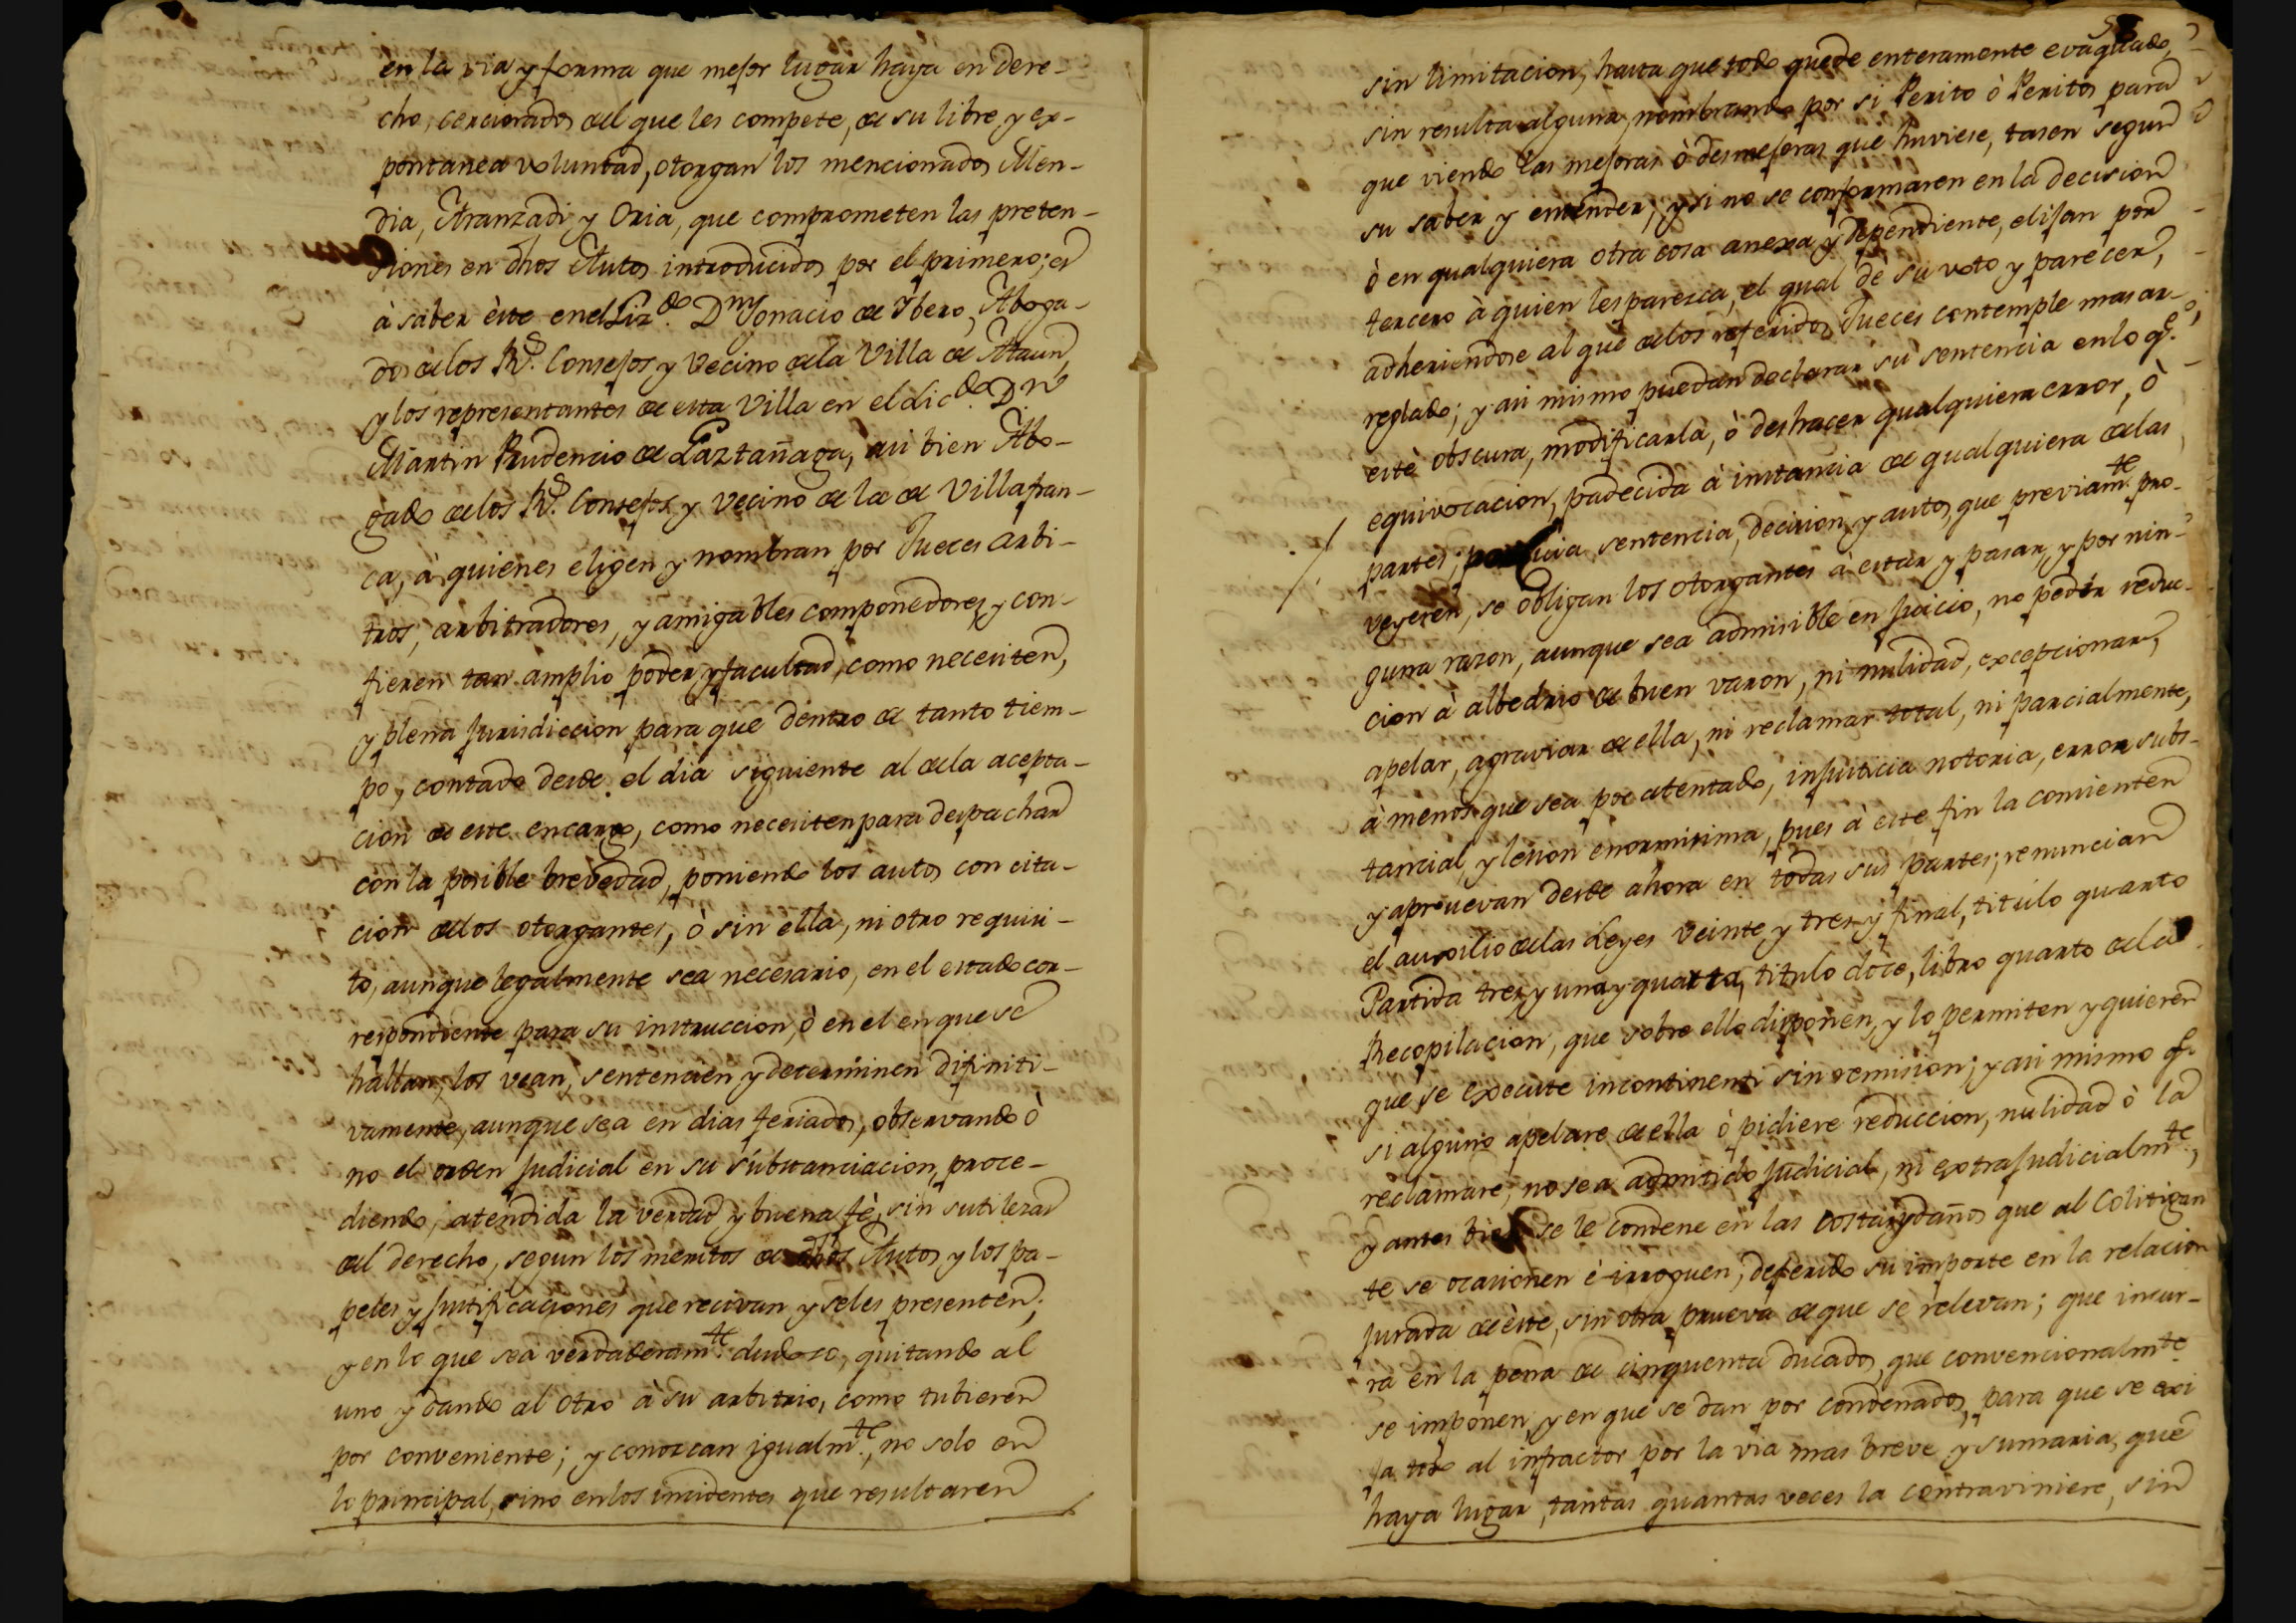 en la via y forma que mejor lugar haya en dere-
cho, cerciorados del que les compete, de su libre, y ex-
pontanea voluntad, otorgan los mencionados Men-
dia, Aranzadi y Oria, que comprometen las preten-
siones en dhos Autos introducidos por el primero; es
à saber èste en el Lizdo. Dn Ignacio de Ybero, Aboga-
do de los Rs. Consejos y Vecino de la Villa de Ataun,
y los representantes de esta Villa en el Licdo. Dn
Martin Prudencio de Laztañaga, assi bien Abo-
gado de los Rs. Consejos y Vecino de la de Villafran-
ca, à quienes eligen y nombran por Jueces arbi-
tros, arbitradores, y amigables componedores, y con-
fieren tan amplio poder y facultad, como necesiten,
y plena jurisdiccion para que dentro de tanto tiem-
po, contado desde el dia siguiente al de la acepta-
cion de este encargo, como necesiten para despachar
con la posible brevedad, poniendo los autos con cita-
cion de los otorgantes, ò sin ella, ni otro requisi-
to, aunque legalmente sea necesario, en el estado cor-
respondiente para su instruccion, ò en el en que se
hallan, los vean, sentencien y determinen difiniti-
vamente, aunque sea en dias feriados, observando ò
no el orden judicial en su substanciacion, proce-
diendo, atendida la verdad y buena fè, sin sutilezas
del derecho, segun los meritos de dhos Autos, y los pa-
peles y justificaciones que recivan y se les presenten;
y en lo que sea verdaderamte. dudoso, quitando al
uno y dando al otro à su arbitrio, como tubieren
por conveniente; y conozcan igualmte., no solo en
lo principal, sino en los incidentes que resultaren
sin limitacion, hasta que todo quede enteramente evaquado,
sin resulta alguna, nombrando por si Perito ò Peritos para
que viendo las mejoras ò desmejoras que huviese, tasen segun
su saber y entender; y si no se conformaren en la decision
ò en qualquiera otra cosa anexa y dependiente, elijan por
tercero à quien les parezca, el qual dè su voto y parecer,
adheriendose al que de los referidos Jueces contemple mas ar-
reglado; y assi mismo puedan declarar su sentencia en lo qe.
estè obscura, modificarla, ò deshacer qualquiera error, ò
equivocacion, padecida à instancia de qualquiera de las
partes; por cuia sentencia, decision, y autos, que previamte. pro-
veyeren, se obligan los otorgantes à estar y pasar, y por nin-
guna razon, aunque sea admisible en juicio, no pedir reduc-
cion à albedrio de buen varon, ni nulidad, excepcionar,
apelar, agraviar de ella, ni reclamar total, ni parcialmente,
à menos que sea por atentado, injusticia notoria, error subs-
tancial, y lesion enormisima, pues à este fin la consienten
y apruevan desde ahora en todas sus partes; renuncian
el auxilio de las Leyes veinte y tres y final, titulo quarto
Partida tres, y una y quarta, titulo doce, libro quarto de la
Recopilacion, que sobre ello disponen, y lo permiten y quieren
que se execute incontinenti sin remision; y assi mismo q.
si alguno apelare de ella ò pidiere reduccion, nulidad ò la
reclamare, no sea admitido judicial, ni extrajudicialmte.,
y antes bien se le condene en las costas y daños que al Colitigan
te se ocasionen è irroguen, deferido su importe en la relacion
jurada de èste, sin otra prueva de que se relevan; que incur-
ra en la pena de cinquenta ducados, que convencionalmte.
se imponen, y en que se dan por condenados, para que se exi
ja todo al infractor por la via mas breve y sumaria, que
haya lugar, tantas quantas veces la contraviniere, sin